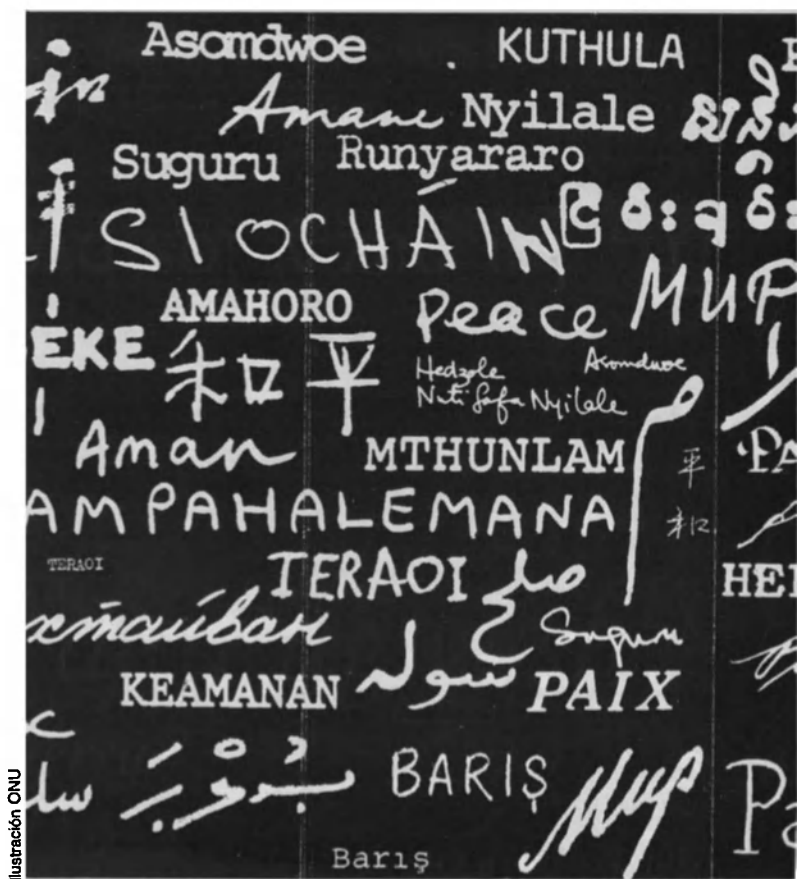 Asomdwoe
KUTHULA
Amani Nyilale
Suguru Runyararo
SIOCHÁIN
MUP
AMAHORO
Peace
EKE
和平
Hedzole Asomdwoe
Nuti Fafa Nyilale
Aman MTHUNLAM
平和
AMPAHALEMANA
TERAOI
TERAOI صلح
HE
Suguru
سوله
KEAMANAN PAIX
BARIŞ Мир
Barış
Ilustración ONU